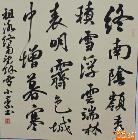 終南陰嶺秀
積雪浮雲端林
表明霽色城
中增暮寒
祖詠